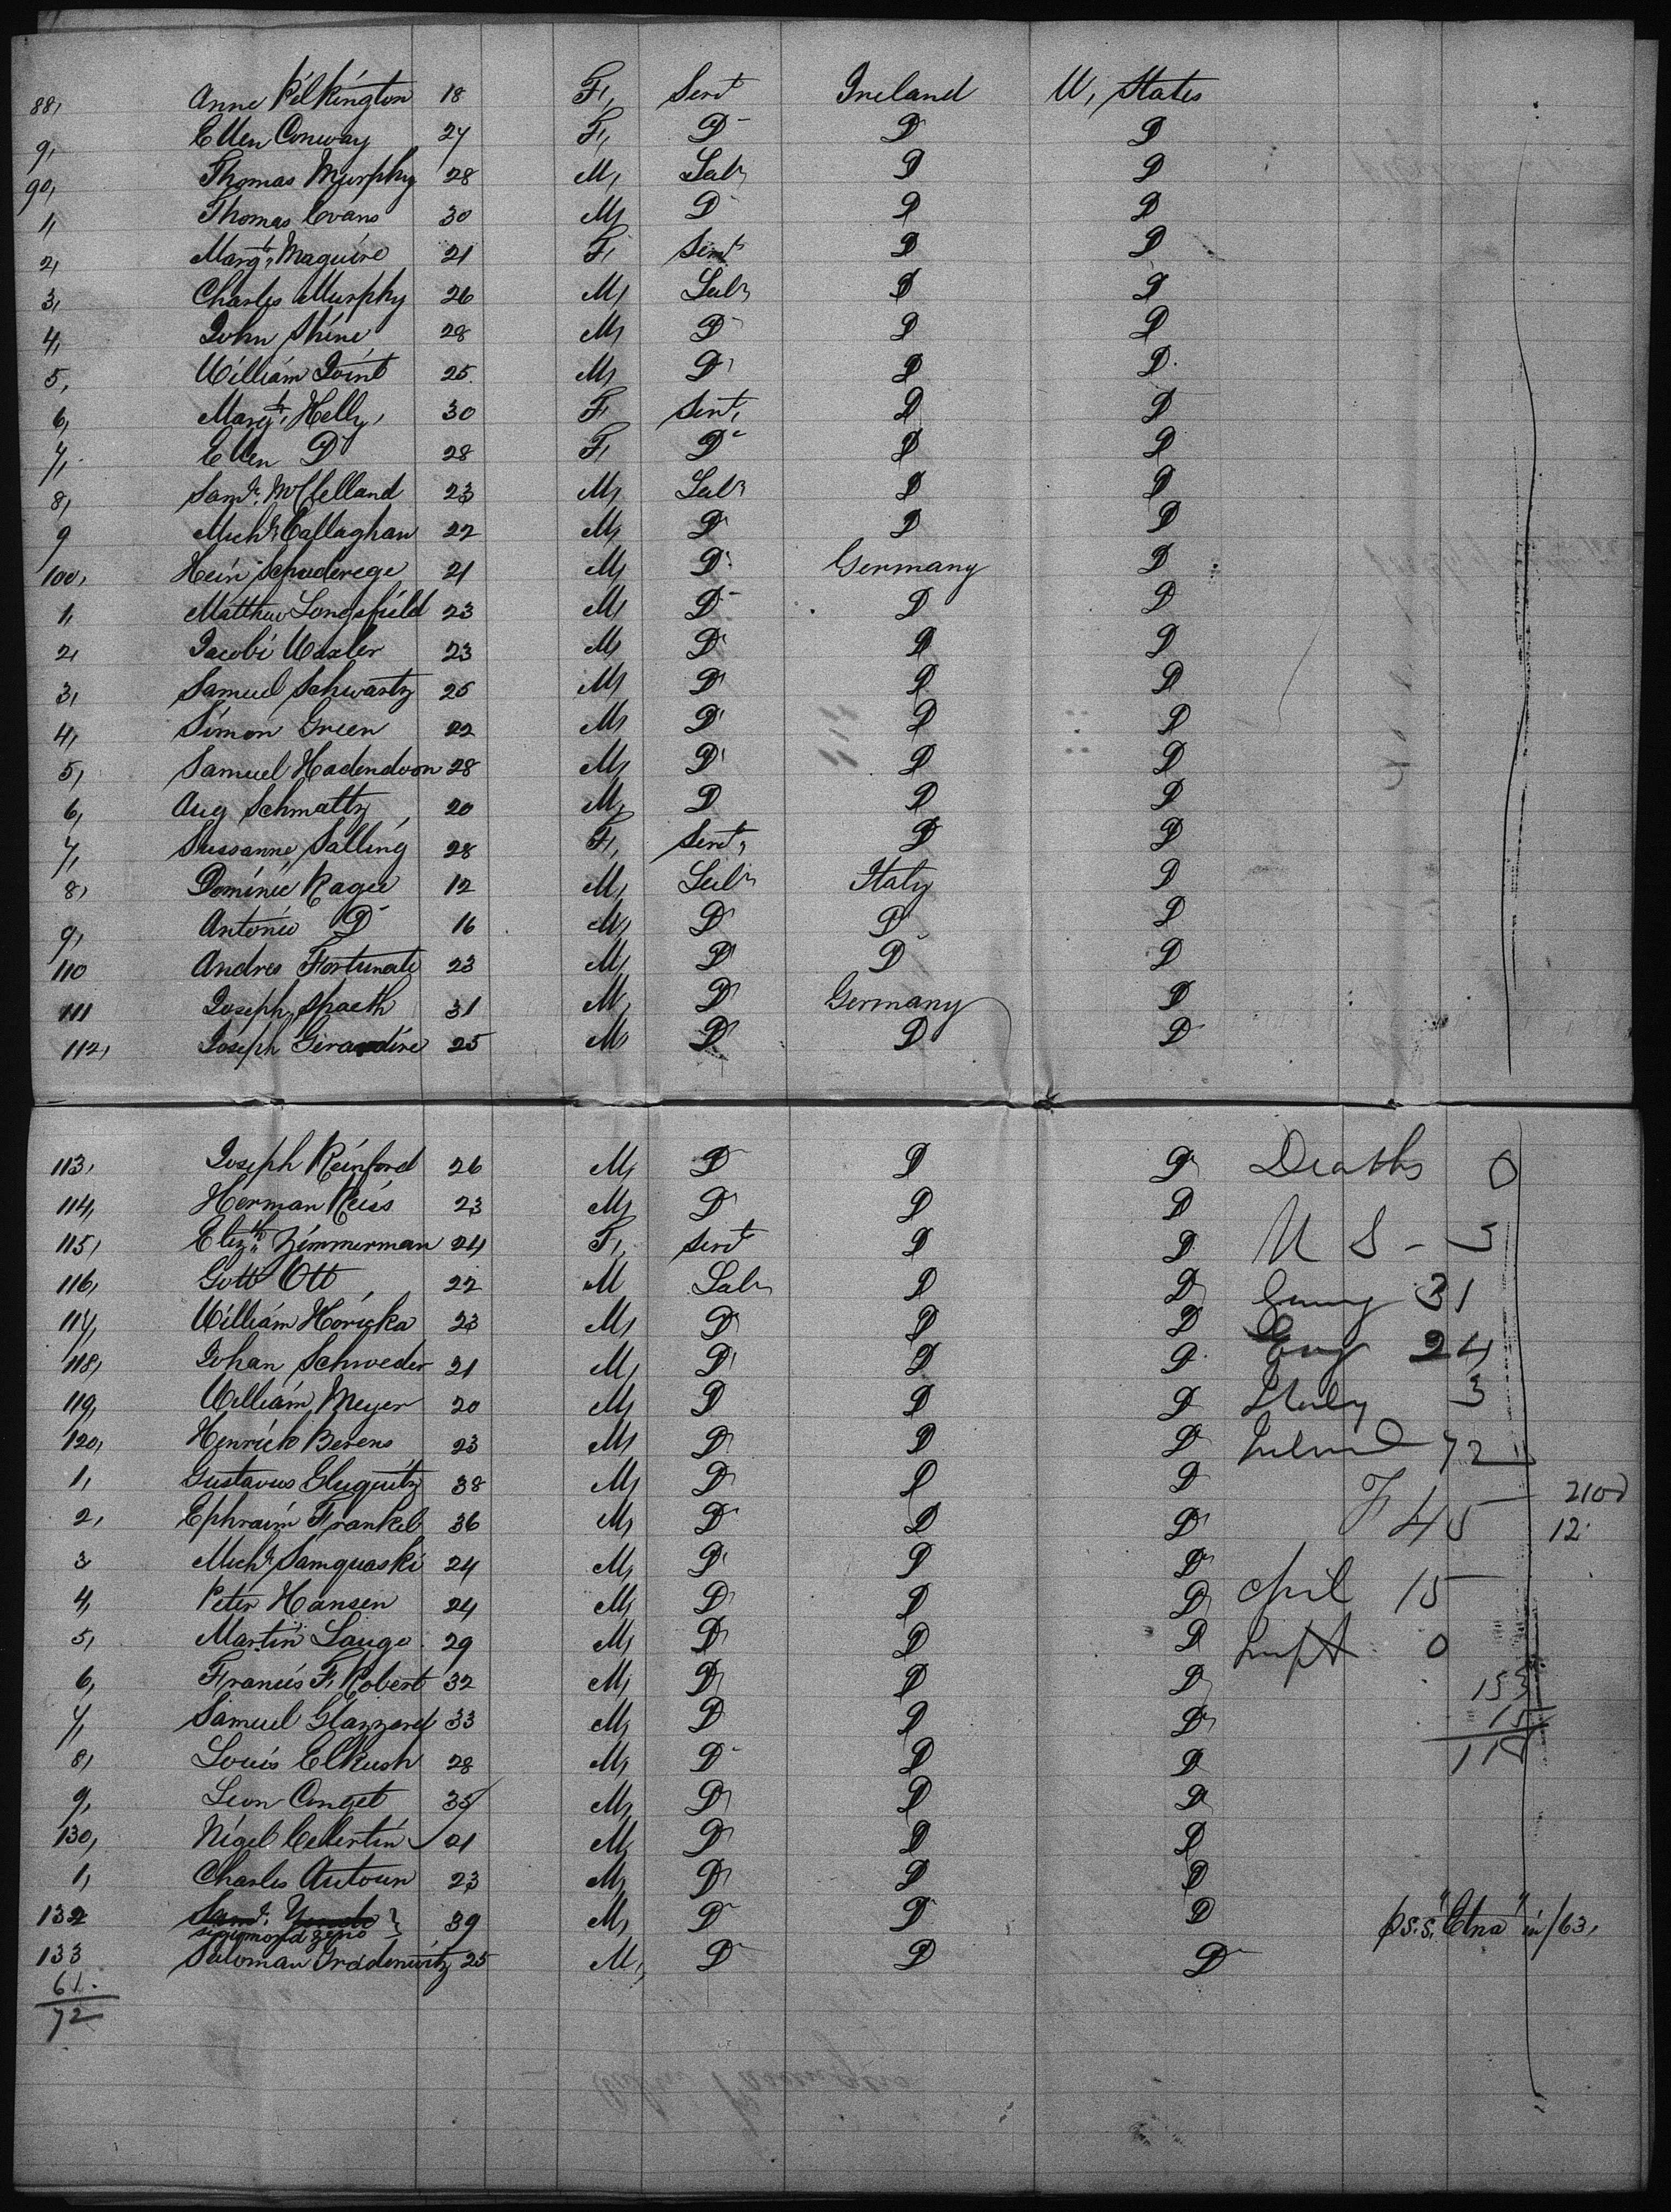 88, Anne Pilkington 18 F, Servt Ireland U, States
9, Ellen Conway 27 F, D D D
90, Thomas Murphy 28 M, Labr D D
1, Thomas Evans 30 M, D D D
2, Margt, Maguire 21 F, Servt D D
3, Charles Murphy 26 M, Labr D D
4, John Shine 28 M, D D D
5, William Joint 25 M, D D D
6, Margt, Helly, 30 F, Servt, D D
7, Ellen D 28 F, D D D
8, Saml. McClelland 23 M, Labr D D
9 Michl Callaghan 22 M, D D D
100, Hein Schuderege 21 M, D Germany D
1, Matthew Longsfield 23 M, D D D
2, Jacobi Waxler 23 M, D D D
3, Samuel Schwartz 25 M, D D D
4, Simon Green 22 M, D D D
5, Samuel Hadendoon 28 M, D D D
6, Aug Schmattz 20 M, D D D
7, Sussanne Salling 28 F, Servt, D D
8, Dominic Ragu 12 M, Labr Italy D
9, Antonio D 16 M, D D D
110 Andres Fortunate 23 M, D D D
111 Joseph Spaeth 31 M, D Germany D
112, Joseph Girardire 25 M, D D D
113, Joseph Reinford 26 M, D D D Deaths 0
114, Herman Reiss 23 M, D D D
115, Elizth Zimmerman 24 F, Servt D D U S - 3
116, Gott Ott 22 M Labr D D Gemy 31
117, William Horicka 23 M, D D D Eng 24
118, Johan Schweder 21 M, D D D
119, William Meyer 20 M, D D D Italy 3
120, Henrick Berens 23 M, D D D Ireland 72
1, Gustavus Gluquitz 38 M, D D D
2, Ephraim Frankel 36 M, D D D F 45 12
3 Michl Samquaski 24 M, D D D
4, Peter Hansen 24 M, D D D Chil 15
5, Martin Lauge 29 M, D D D Inft 0
6, Francis F, Robert 32 M, D D D 153
7, Samuel Glazzard 33 M, D D D 15
8, Louis Elkush 28 M, D D D
9, Leon Anget 35 M, D D D
130, Nigel Cellertin 21 M, D D D
1, Charles Autoun 23 M, D D D
132 Saml. 39 M, D D D p S.S. "Etna" in/63,
Sigismond Zeno
133 Saloman Gradenwitz 25 M, D D D
61.
72